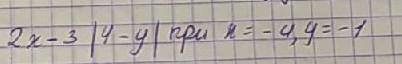 2x-3|4-y| при x=-4, y=-1